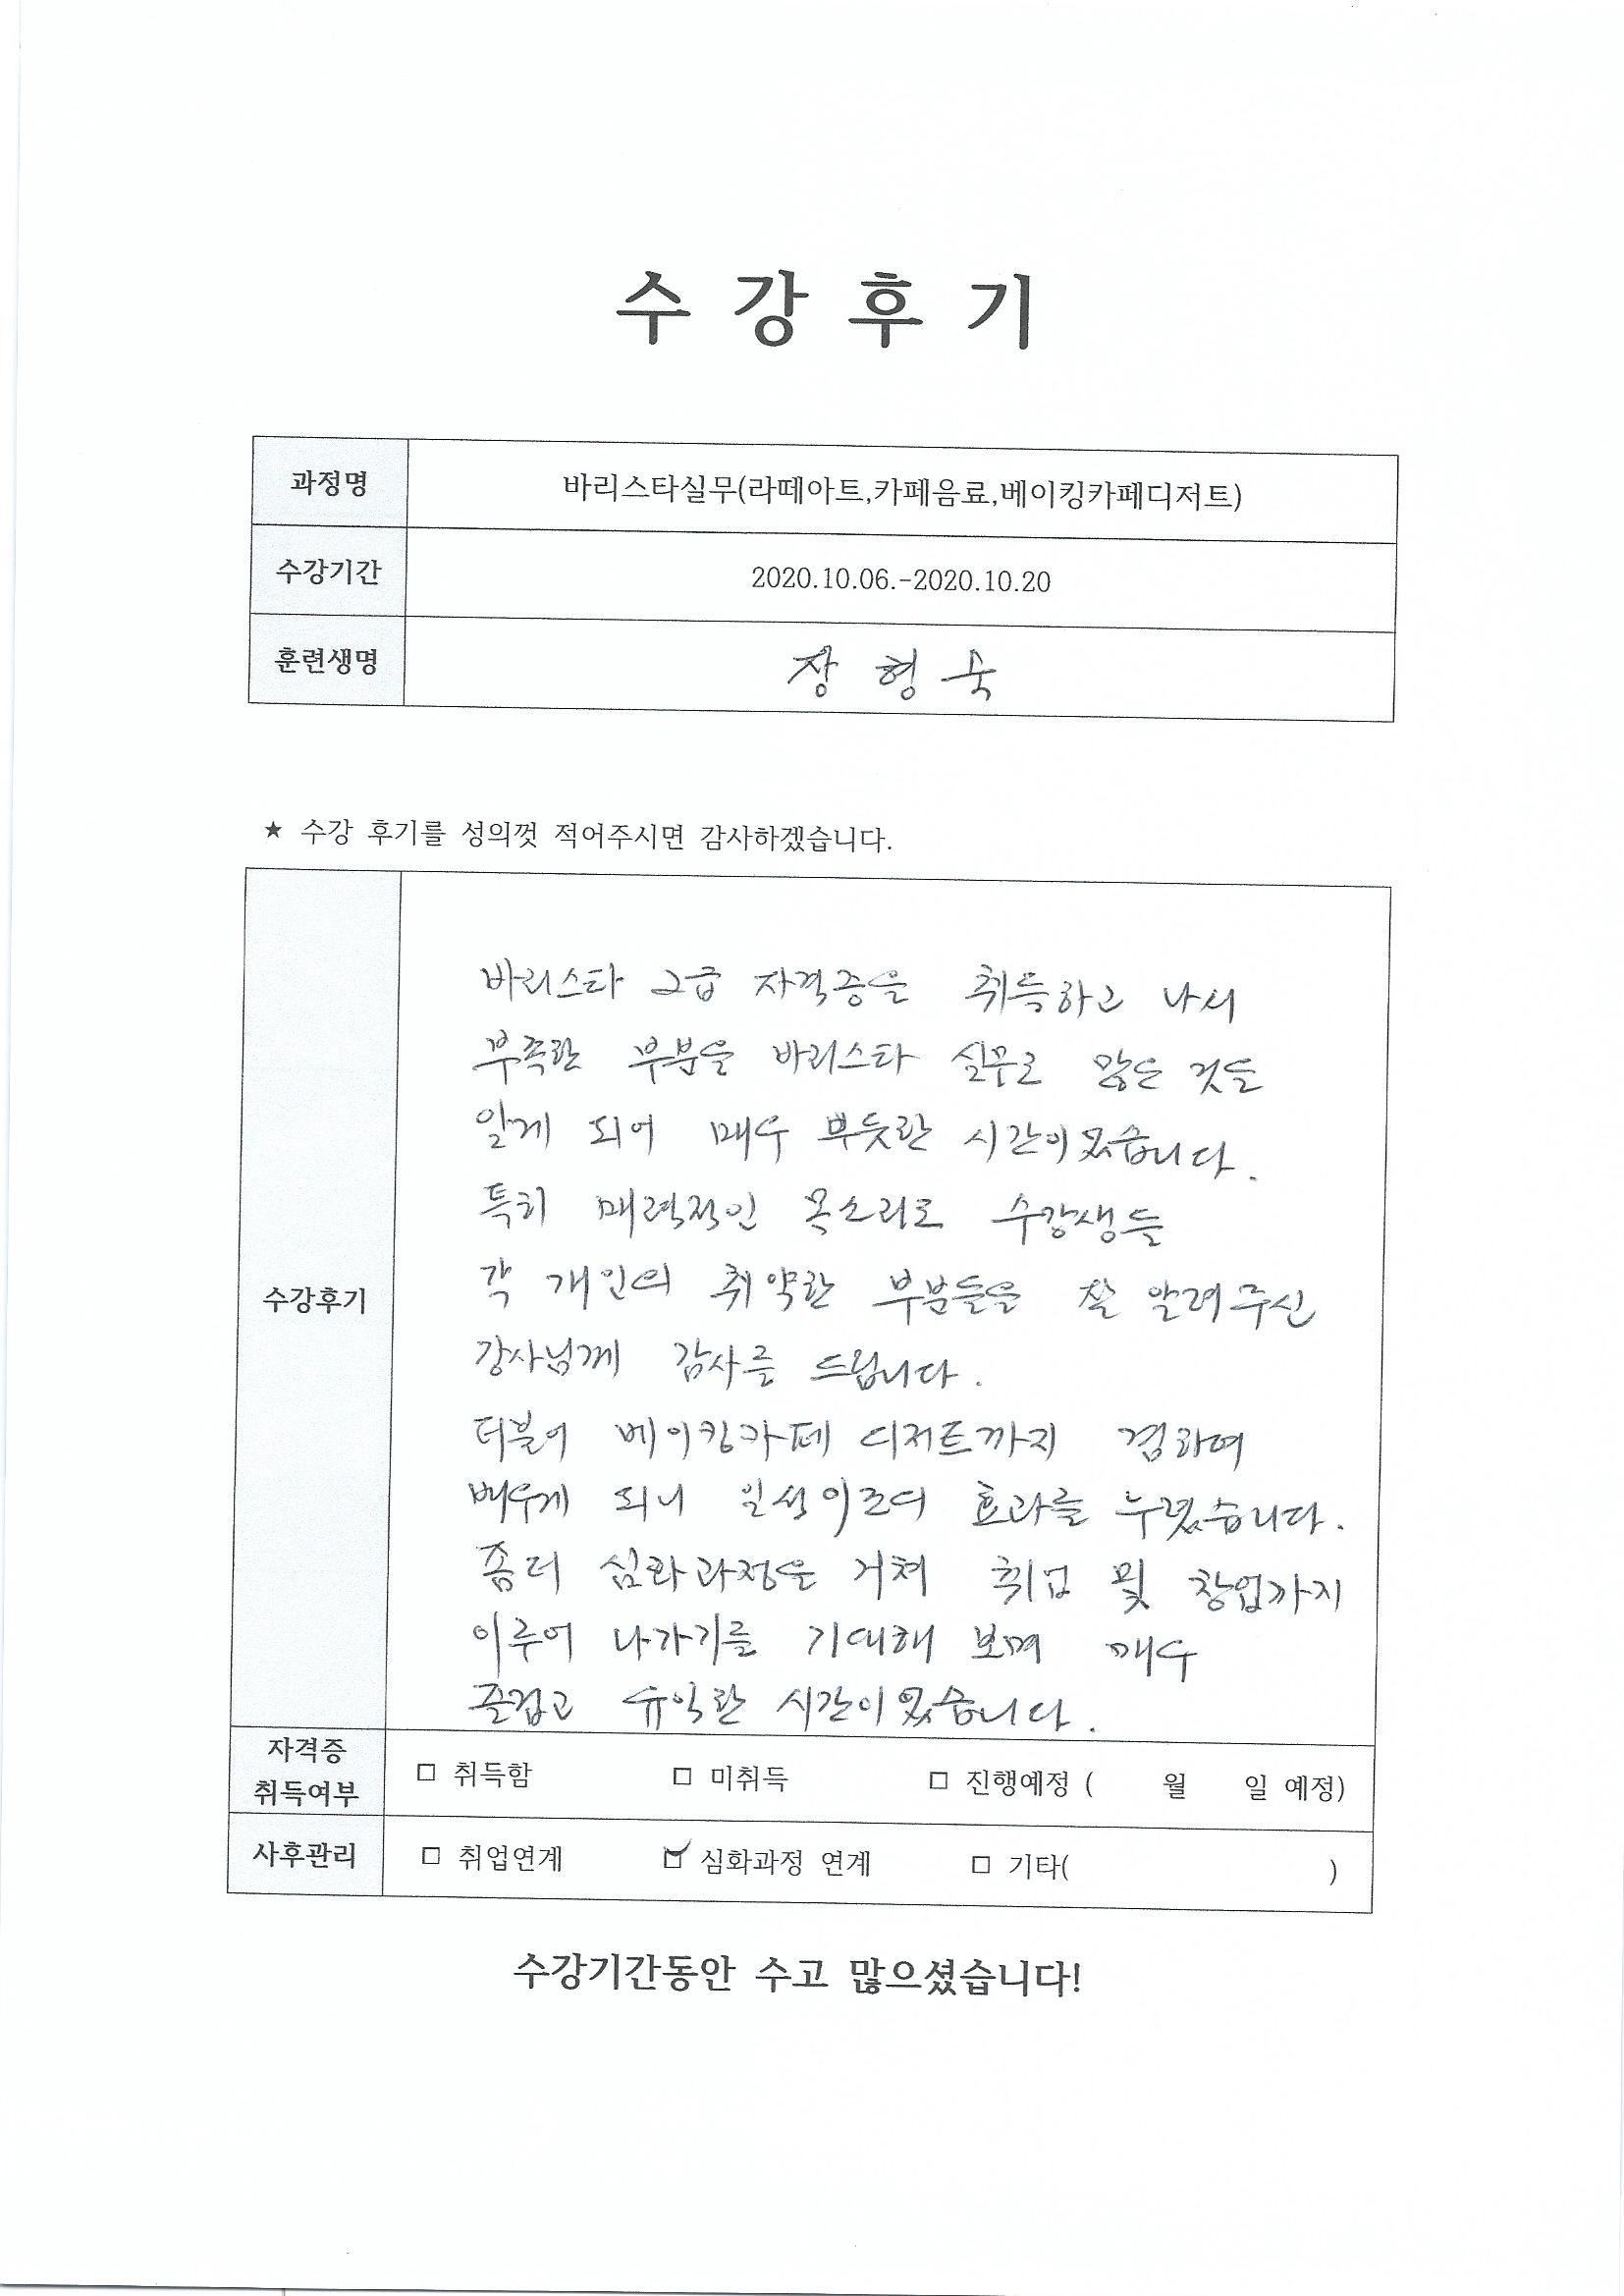 수 강 후 기
과정명 바리스타실무(라떼아트,카페음료,베이킹카페디저트)
수강기간 2020.10.06.-2020.10.20
훈련생명 장 형 숙
★ 수강 후기를 성의껏 적어주시면 감사하겠습니다.
수강후기
바리스타 2급 자격증을 취득하고 나서
부족한 부분을 바리스타 실무로 많은 것들
알게 되어 매우 뿌듯한 시간이었습니다.
특히 매력적인 목소리로 수강생들
각 개인의 취약한 부분들을 잘 알려주신
강사님께 감사를 드립니다.
더불어 베이킹카페 디저트까지 겸하여
배우게 되니 일석이조의 효과를 누렸습니다.
좀더 심화과정을 거쳐 취업 및 창업까지
이루어 나가기를 기대해 보며 매우
즐겁고 유익한 시간이었습니다.
자격증 취득여부 □ 취득함 □ 미취득 □ 진행예정 ( 월 일 예정)
사후관리 □ 취업연계 ☑ 심화과정 연계 □ 기타( )
수강기간동안 수고 많으셨습니다!